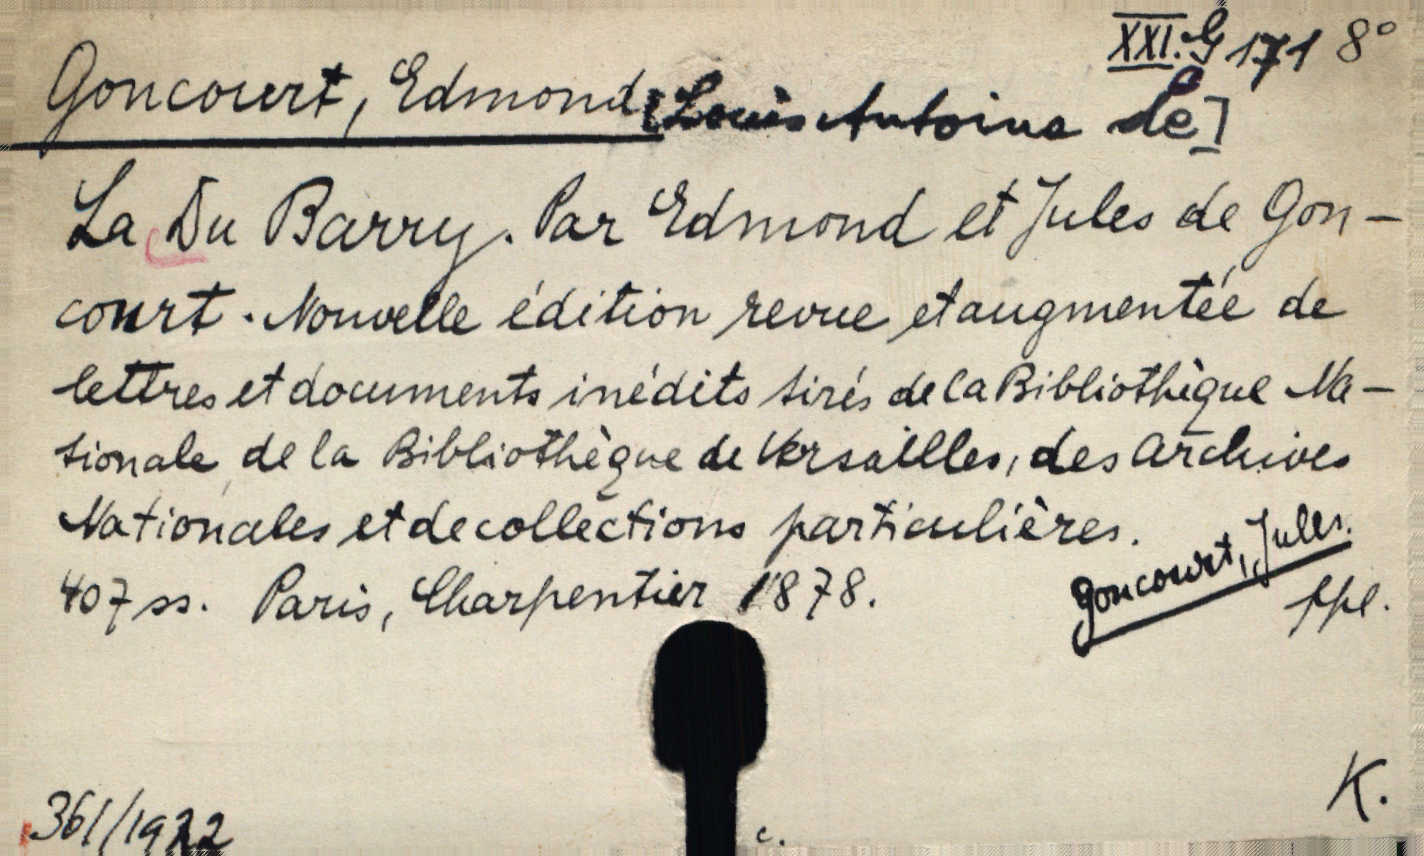 XXI. G 171 8°
Goncourt, Edmond [Louis Antoine de]
La Du Barry. Par Edmond et Jules de Gon-
court. Nouvelle édition revue et augmentée de
lettres et documents inédits tirés de la Bibliothèque Na-
tionale, de la Bibliothèque de Versailles, des Archives
Nationales et de collections particulières.
407 ss. Paris, Charpentier 1878.
Goncourt, Jules.
K.
361/1922
c.